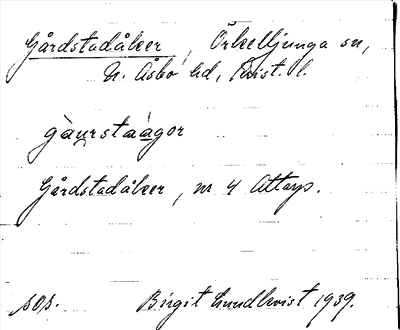 Gårdstadåker, Örkelljunga sn,
N. Åsbo hd, Krist. l.
gàu̯rstaàgor
Gårdstadåker, m 4 Attarp.
sos. Birgit Lundkvist 1939.